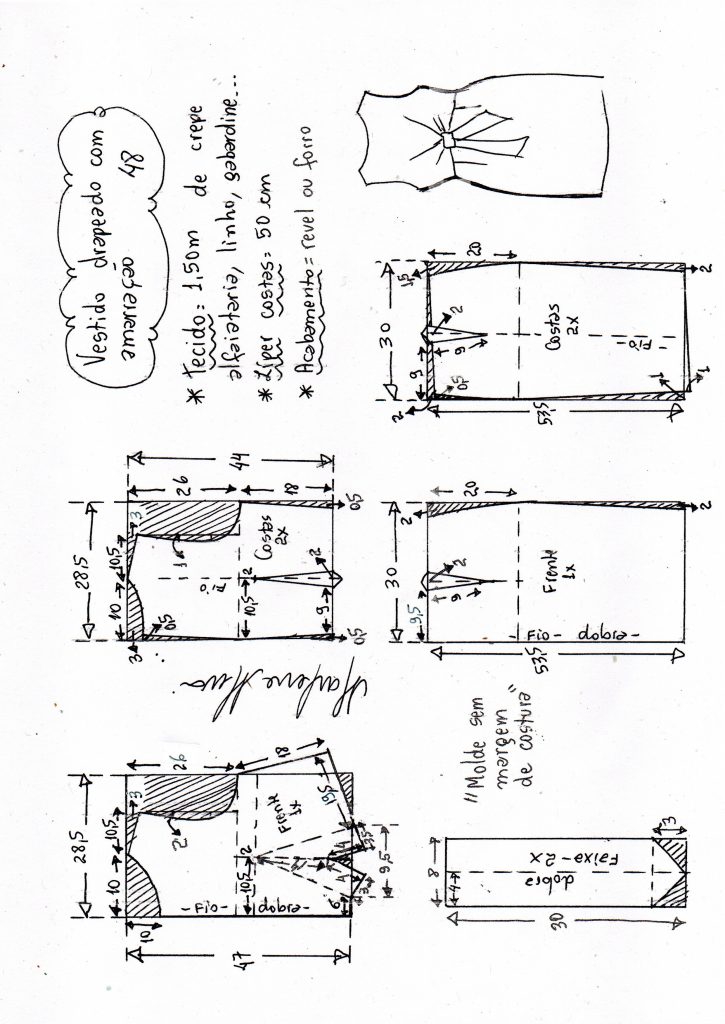 Vestido drapeado com
amarração 48
* Tecido = 1,50m de crepe
alfaiataria, linho, gabardine...
* Zíper costas = 50 cm
* Acabamento = revel ou forro
28,5
10
10,5
3
26
10
2
Frente
1x
18
10,5
2
- Fio - dobra -
47
19,5
6
9,5
28,5
10
10,5
3
3
26
44
1
0,5
Fio
Costas
2x
18
10,5
2
9
2
0,5
0,5
30
9,5
2
20
9
2
Frente
1x
- Fio - dobra -
53,5
2
30
2
9
0,5
1,5
20
9
2
Costas
2x
Fio
53,5
1
1
2
"Molde sem
margem
de costura"
8
4
Faixa - 2x
dobra
30
3